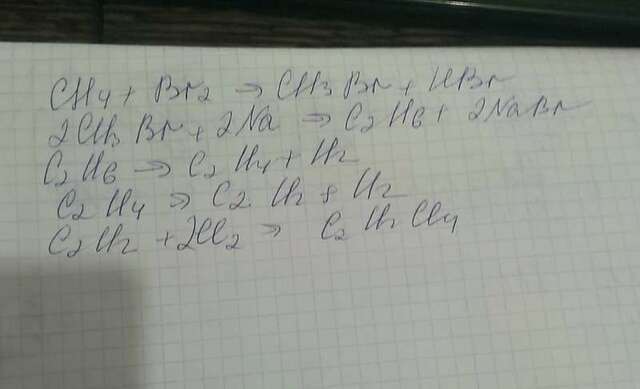 CH4 + Br2 → CH3Br + HBr
2CH3Br + 2Na → C2H6 + 2NaBr
C2H6 → C2H4 + H2
C2H4 → C2H2 + H2
C2H2 + 2Cl2 → C2H2Cl4